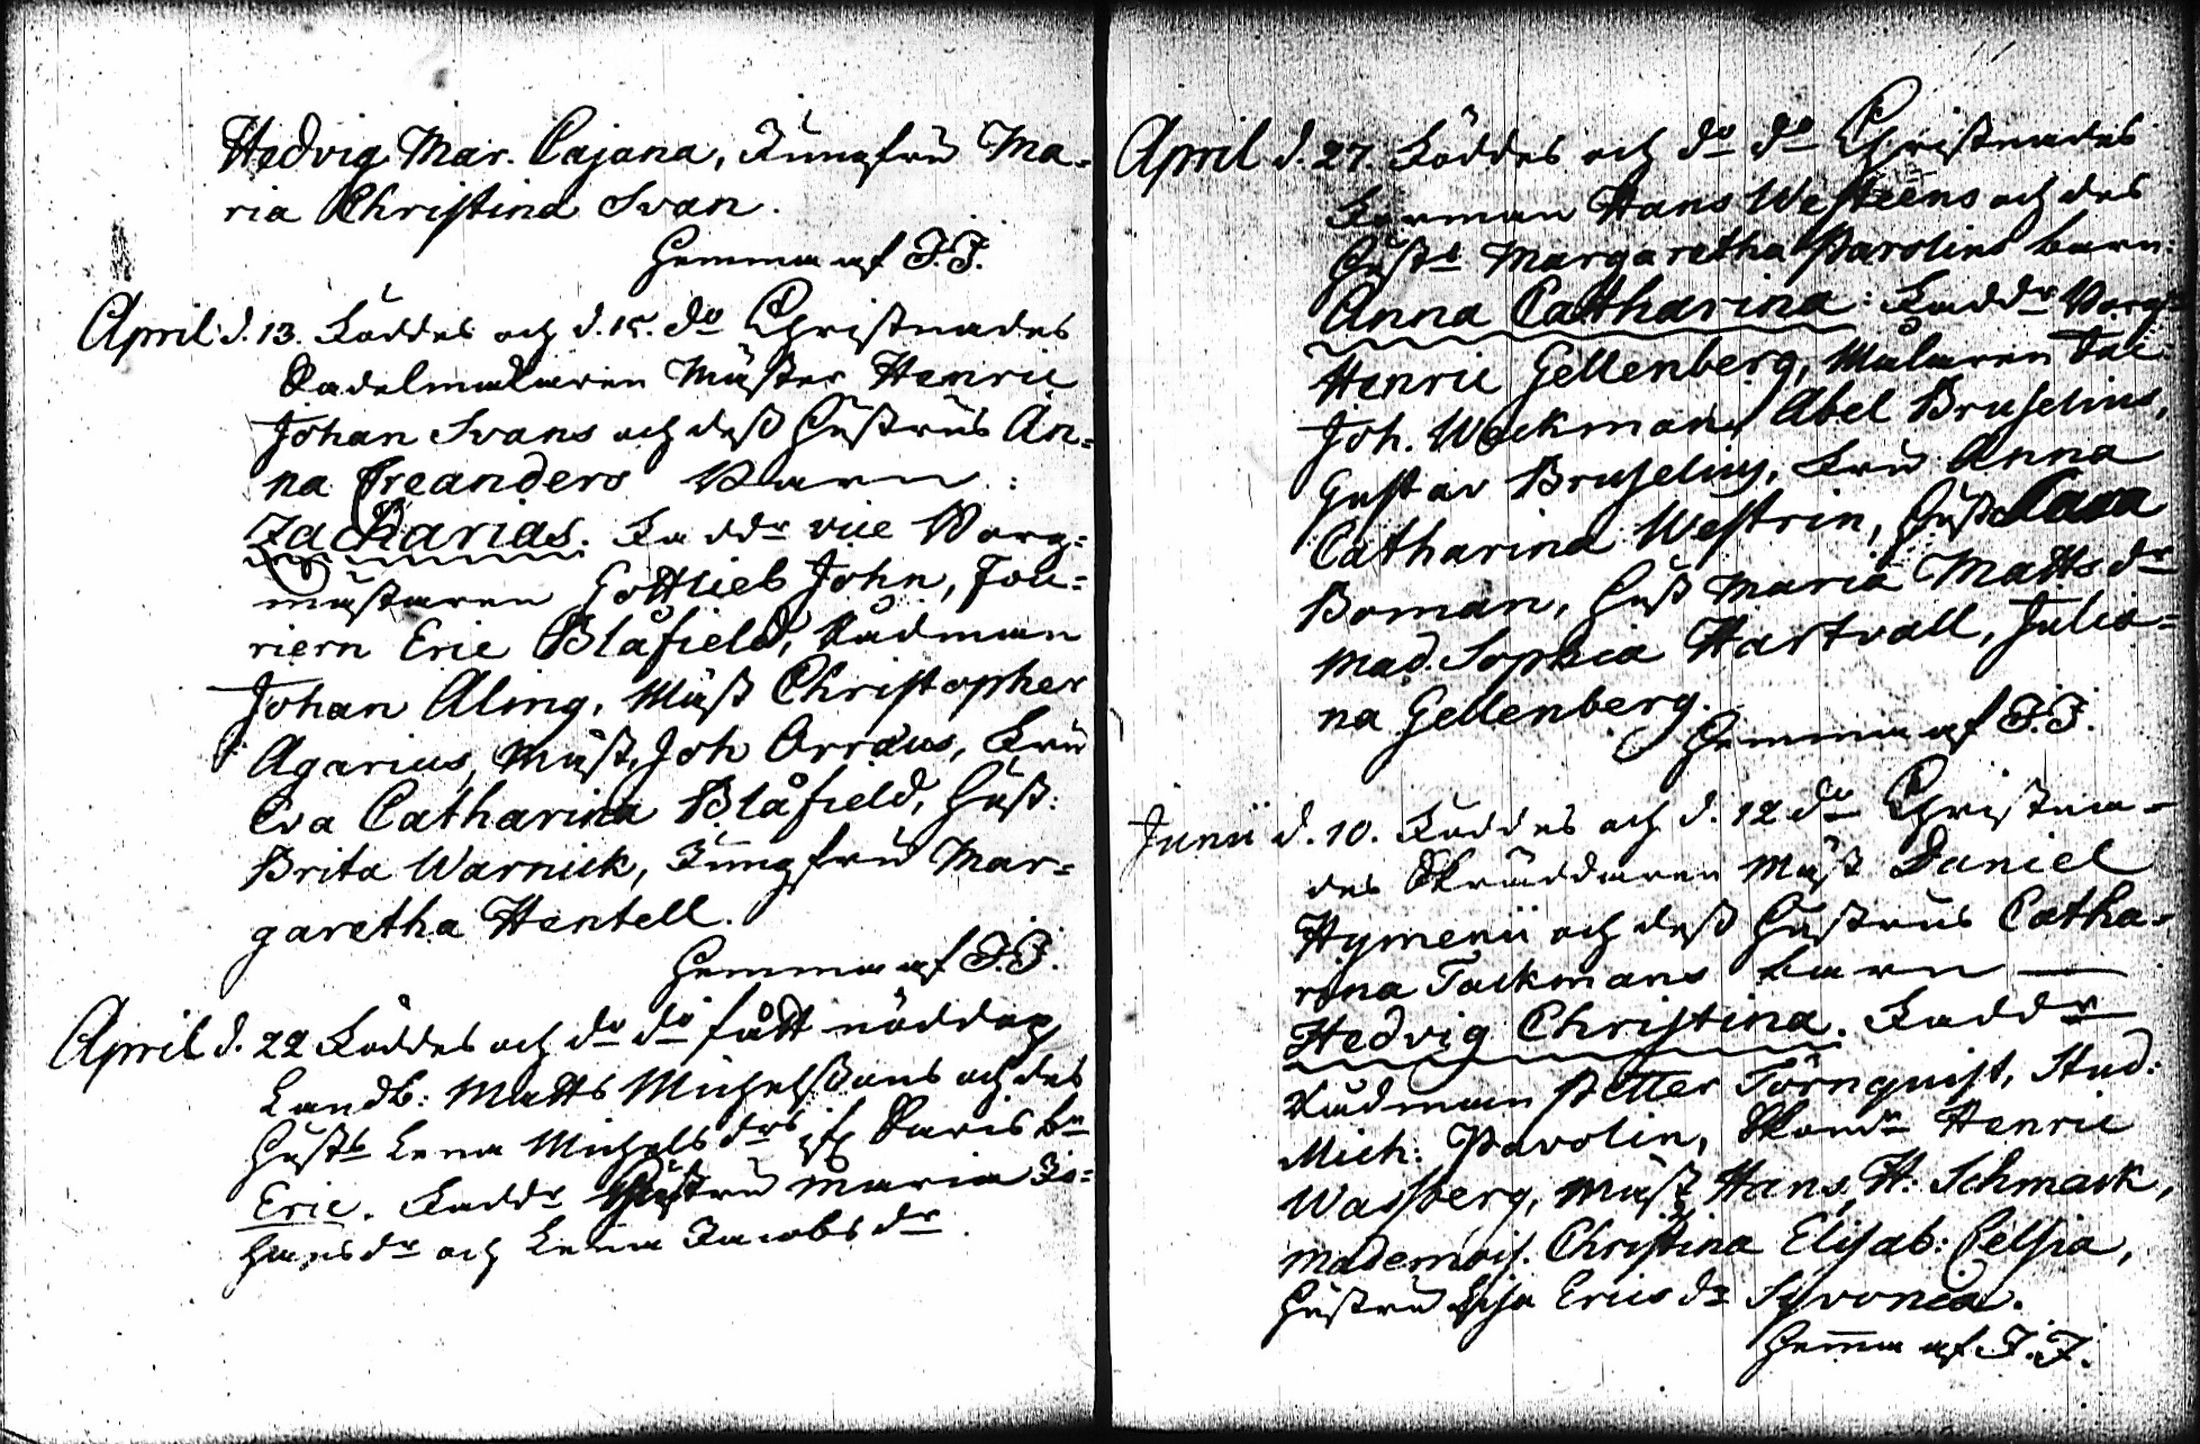 Hedvig Mar. Cajana, Jungfru Ma=
ria Christina Svan.
Hemma af J.J.
April d. 13. Föddes och d. 15. do Christnades
Sadelmakaren Mäster Henric
Johan Svans och dess Hustrus An=
na Freanders Barn:
Zacharias. Faddr vice Borg=
mästaren Gottlieb John, Fou=
riern Eric Blåfield, Rådman
Johan Aling, Mäst Christopher
Agarius, Mäst. Joh Arræus, Fru
Eva Catharina Blåfield, Hust:
Brita Warnick, Jungfru Mar=
garetha Hentell.
Hemma af J.J.
April d. 22 Föddes och do do fått nöddop
Landb: Matts Michelssons och des
Husts Lena Michels drs ifr Saris bn
Eric. Faddr Hustru Maria Jo=
hans dr och Lena Jacobs dr.
April d. 27. Föddes och do do Christnades
Forman Hans Westeens och des
Husts Margaretha Parolins barn:
Anna Catharina: Faddr Borgm
Henric Gellenberg, Målaren Fac
Joh. Weckman, Abel Bruselius,
Gustav Bruselius, Fru Anna
Catharina Westrin, Hust Cara
Boman, Hust Maria Matts dr
Mad. Sophia Hartvall, Julia=
na Gellenberg.
Hemma af J.J.
Junii d. 10. Föddes och d. 12 do Christna=
des Skräddaren Mäst Daniel
Hymenii och dess Hustrus Catha=
rina Tackmans barn
Hedvig Christina. Faddr
Rådman Petter Törnquist, Stud:
Mich: Pavolin, Skomr Henric
Wassberg, Mäst Hans H: Schmack,
Mademois. Christina Elisab: Celsia,
Hustru Lisa Erics dr Syvonia.
Hemma af J.J.